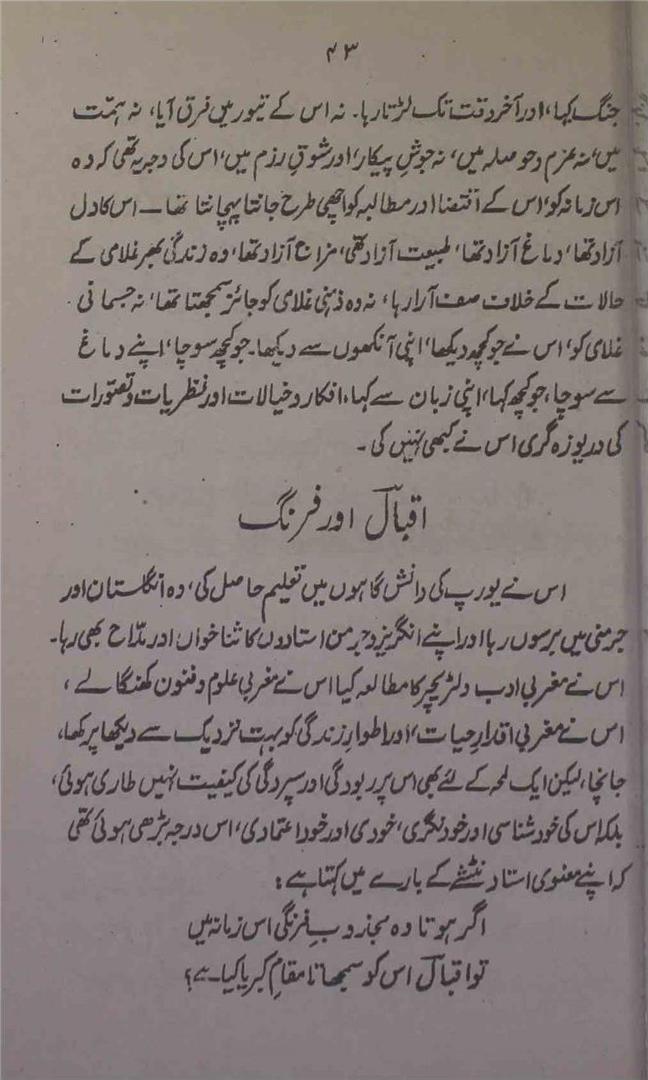 ۴۳
جنگ کہا، اور آخر وقت تک لڑتا رہا۔ نہ اس کے تیور میں فرق آیا، نہ ہمّت
میں، نہ عزم و حوصلہ میں، نہ جوشِ پیکار، اور شوقِ رزم میں، اس کی وجہ یہ تھی کہ وہ
اس زمانہ کو، اس کے اقتضا اور مطالبہ کو اچھی طرح جانتا پہچانتا تھا۔ اس کا دل
آزاد تھا، دماغ آزاد تھا، طبیعت آزاد تھی، مزاج آزاد تھا، وہ زندگی بھر غلامی کے
حالات کے خلاف صف آرا رہا، نہ وہ ذہنی غلامی کو جائز سمجھتا تھا، نہ جسمانی
غلامی کو، اس نے جو کچھ دیکھا، اپنی آنکھوں سے دیکھا۔ جو کچھ سوچا، اپنے دماغ
سے سوچا، جو کچھ کہا، اپنی زبان سے کہا، افکار و خیالات اور نظریات و تصورات
کی دریوزہ گری اس نے کبھی نہیں کی۔
اقبالؔ اور فرنگ
اس نے یورپ کی دانش گاہوں میں تعلیم حاصل کی، وہ انگلستان اور
جرمنی میں برسوں رہا اور اپنے انگریز و جرمن استادوں کا ثنا خواں اور مدّاح بھی رہا۔
اس نے مغربی ادب و لٹریچر کا مطالعہ کیا اس نے مغربی علوم و فنون کھنگالے،
اس نے مغربی اقدارِ حیات، اور اطوارِ زندگی کو بہت نزدیک سے دیکھا پرکھا،
جانچا، لیکن ایک لمحہ کے لئے بھی اس پر ربودگی اور سپردگی کی کیفیت نہیں طاری ہوئی،
بلکہ اس کی خود شناسی اور خود نگری، خودی اور خود اعتمادی، اس درجہ بڑھی ہوئی تھی
کہ اپنے معنوی استاد نٹشے کے بارے میں کہتا ہے:
اگر ہوتا وہ مجذوبِ فرنگی اس زمانہ میں
تو اقبالؔ اس کو سمجھاتا مقامِ کبریا کیا ہے؟